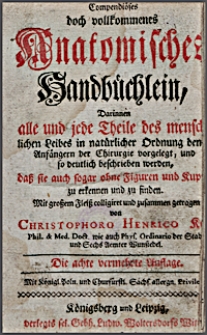 Compendiöses
doch vollkommenes
Anatomisches
Handbüchlein,
Darinnen
alle und jede Theile des mensch
lichen Leibes in natürlicher Ordnung den
Anfängern der Chirurgie vorgelegt, und
so deutlich beschrieben werden,
daß sie auch sogar ohne Figuren und Kupf
zu erkennen und zu finden.
Mit großem Fleiß colligiret und zusammen getragen
von
CHRISTOPHORO HENRICO K
Phil. & Med. Doct. wie auch Phys. Ordinario der Stadt
und Sechs Aemter Wunsiedel.
Die achte vermehrte Auflage.
Mit Königl. Poln. und Churfürstl. Sächs. allergn. Privile
Königsberg und Leipzig,
verlegts sel. Gebh. Ludw. Woltersdorfs Witt